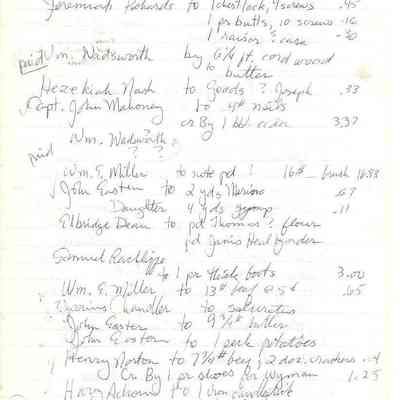 Jeremiah Richards to 1 chest lock, 4 screws .45
1 pr butts, 10 screws .16
1 raisor? & case .30
paid Wm. Wadsworth by 6¼ ft. cord wood
to butter
Hezekiah Nash to Goods? Joseph .33
Capt. John Mahoney to 4# nails
cr By 1 bbl. cider 3.37
paid Wm. Wadsworth?
? ?
Wm. E. Miller to note pd ? 16# 16.83
John Eastern to 2 yds Merino .67
Daughter 4 yds gymp .11
Elbridge Dean to pd Thomas? flour
pd Janis
Samuel
to 1 pr thick boots 3.00
Wm. E. Miller to 13# beef @ 5¢ .65
Chandler to saleratus
John Eastern to 9¾# butter
John Eastern to 1 peck potatoes
Henry Norton to 7½# beef, 2 doz. crackers
Cr By 1 pr shoes for Wyman 1.25
Harry Achorn to 1 iron candlestick